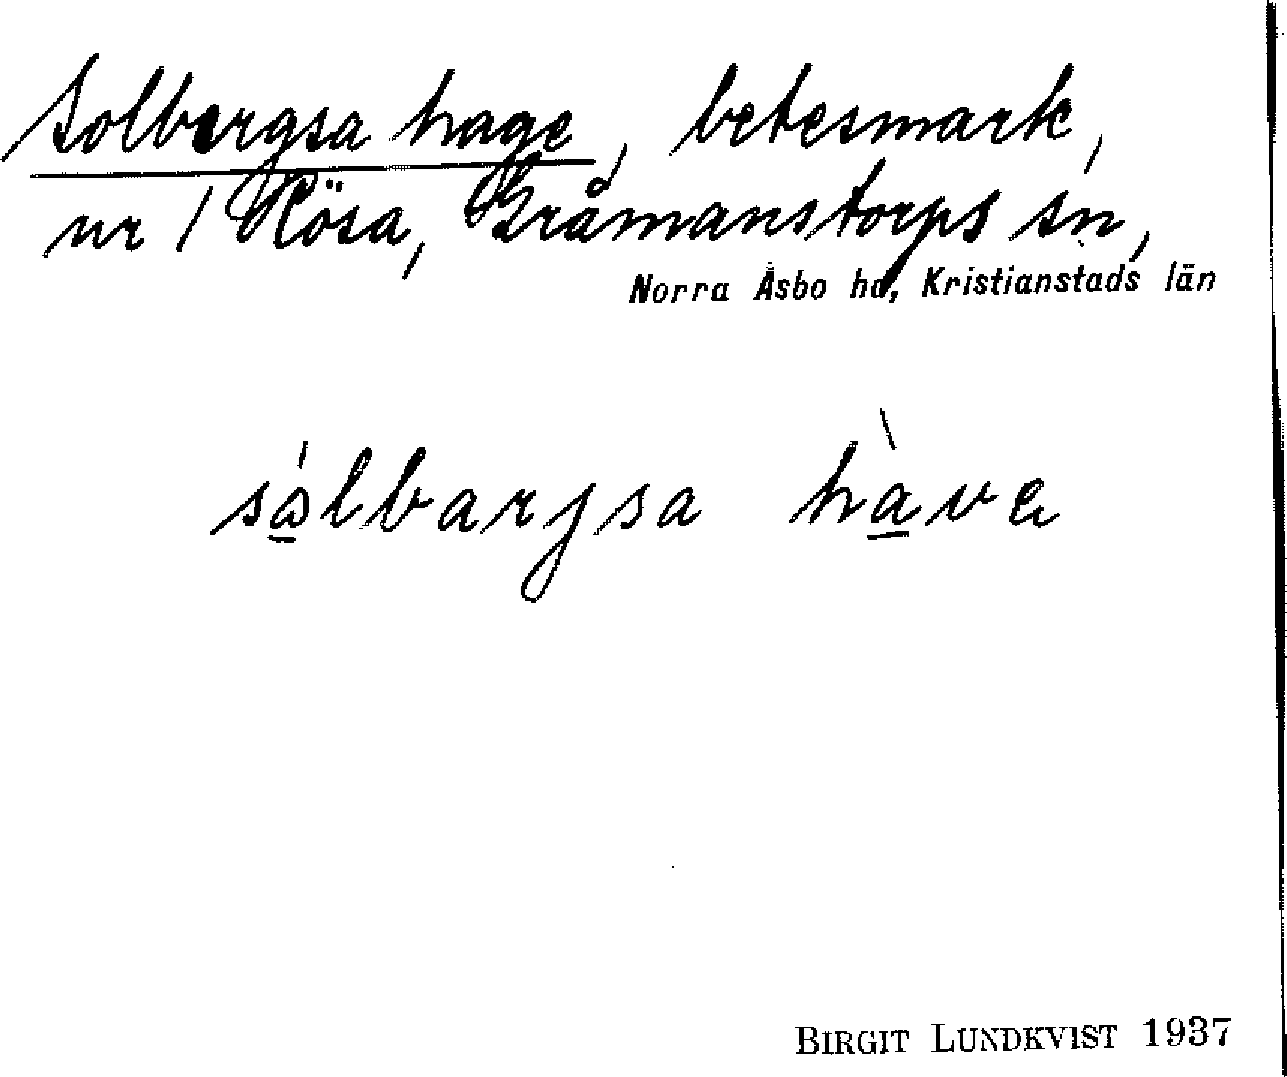 Solbergsa hage, betesmark,
nr 1 Rösa, Gråmanstorps sn,
Norra Åsbo hd, Kristianstads län
sålbarjsa have
BIRGIT LUNDKVIST 1937